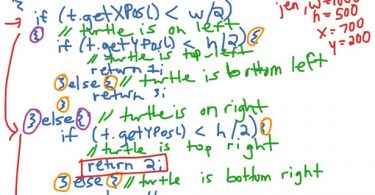 } if (t.getXPos() < w/2)
{ // turtle is on left
if (t.getYPos() < h/2) {
// turtle is top left
return 1;
} else { // turtle is bottom left
return 3;
}
} else { // turtle is on right
if (t.getYPos() < h/2) {
// turtle is top right
return 2;
} else { // turtle is bottom right
jen, w=1000
h=500
x=700
y=200